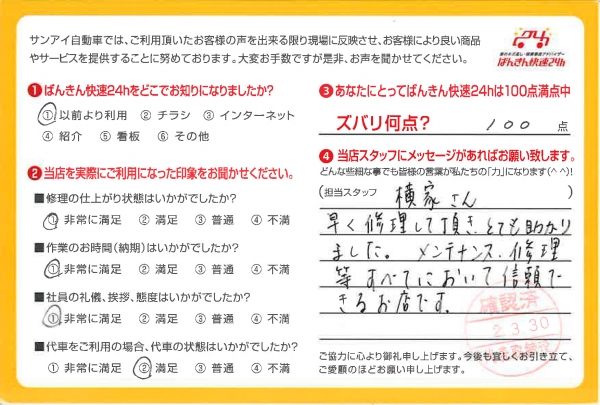 サンアイ自動車では、ご利用頂いたお客様の声を出来る限り現場に反映させ、お客様により良い商品
やサービスを提供することに努めております。大変お手数ですが是非、お声を聞かせてください。
24h
車のキズ直し・損害事故アドバイザー
ばんきん快速24h
❶ ばんきん快速24hをどこでお知りになりましたか?
① 以前より利用 ② チラシ ③ インターネット
④ 紹介 ⑤ 看板 ⑥ その他
❷ 当店を実際にご利用になった印象をお聞かせください。
■修理の仕上がり状態はいかがでしたか?
① 非常に満足 ② 満足 ③ 普通 ④ 不満
■作業のお時間(納期)はいかがでしたか?
① 非常に満足 ② 満足 ③ 普通 ④ 不満
■社員の礼儀、挨拶、態度はいかがでしたか?
① 非常に満足 ② 満足 ③ 普通 ④ 不満
■代車をご利用の場合、代車の状態はいかがでしたか?
① 非常に満足 ② 満足 ③ 普通 ④ 不満
❸ あなたにとってばんきん快速24hは100点満点中
ズバリ何点? 100 点
❹ 当店スタッフにメッセージがあればお願い致します。
どんな些細な事でも皆様の言葉が私たちの「力」になります(^^)!
(担当スタッフ 横家さん
早く修理して頂き、とても助かり
ました。メンテナンス、修理
等すべてにおいて信頼で
きるお店です。
確認済
2.3.30
ご協力に心より御礼申し上げます。今後も宜しくお引き立て、
ご愛顧のほどお願い申し上げます。